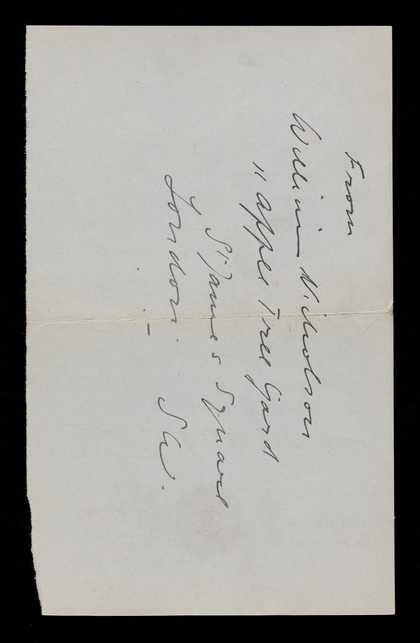 From
William Nicholson
11 Apple Tree Yard
St James's Square
London. SW.